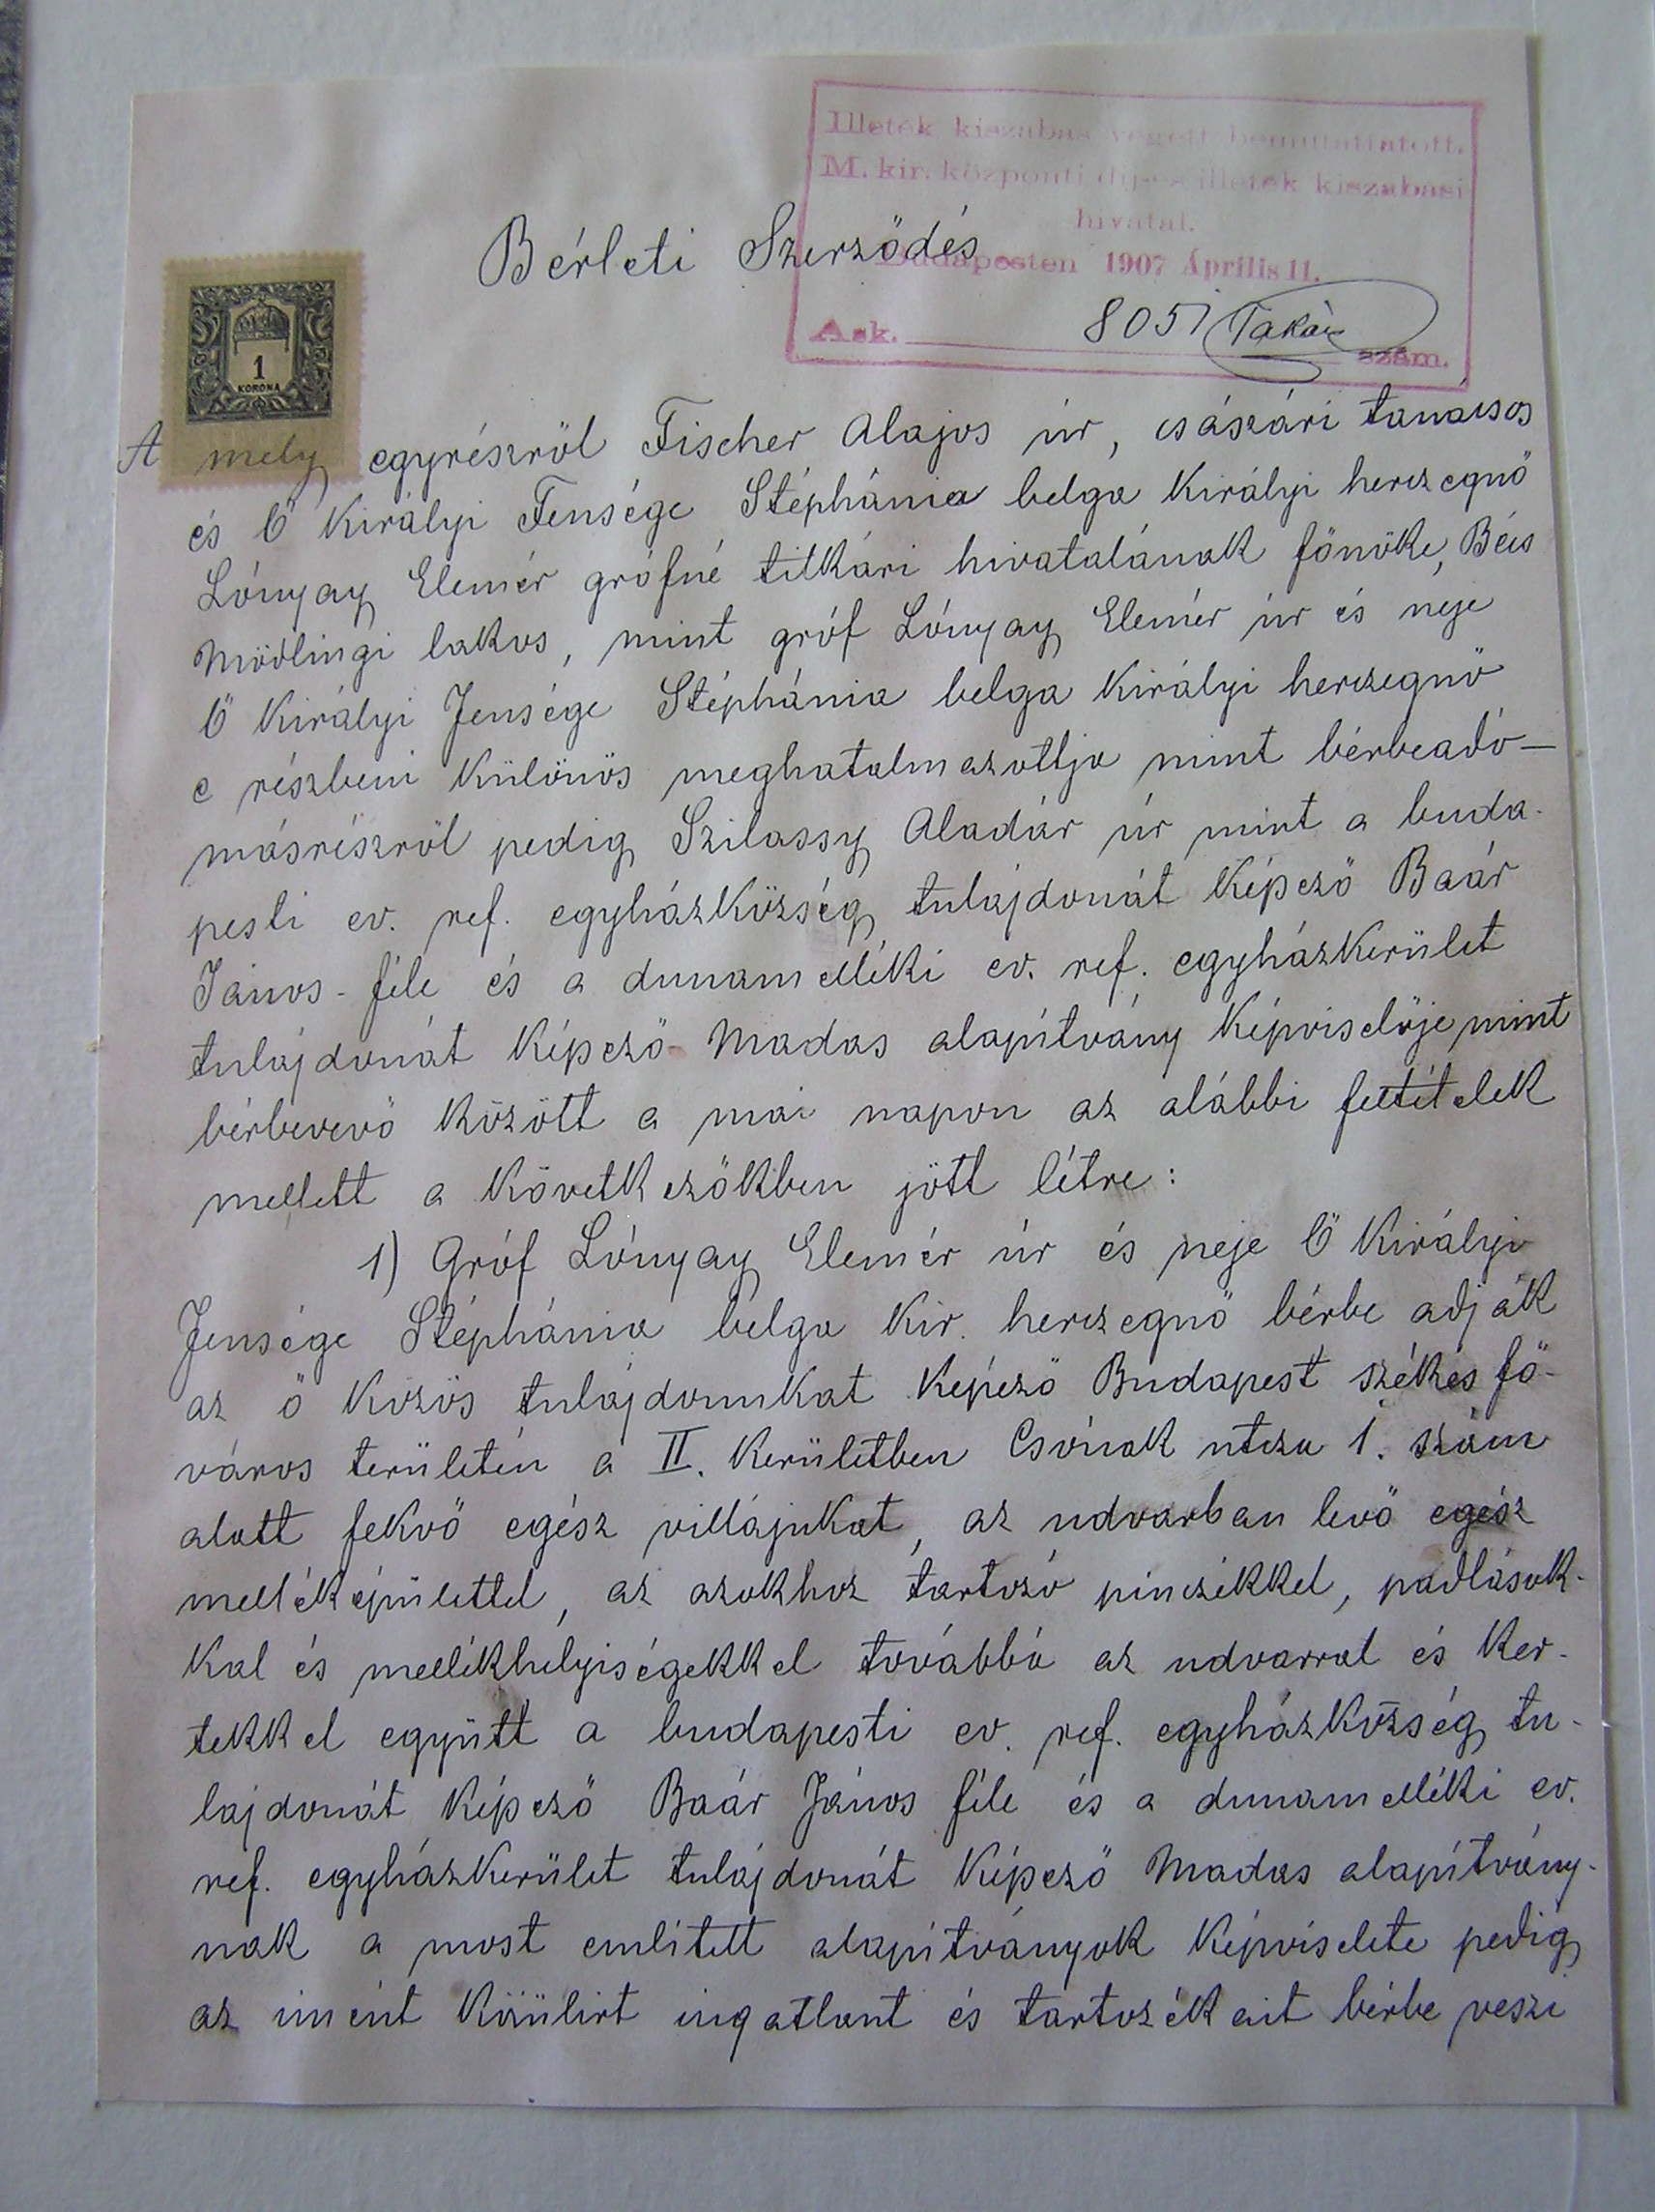 Illeték kiszabás végett bemutattatott.
M. kir. központi díj- és illeték kiszabási
hivatal.
Budapesten 1907 Április 11.
Ask. 8051 szám.
Bérleti Szerződés
1
KORONA
A mely egyrészről Fischer Alajos úr, császári tanácsos
és Ő Királyi Fensége Stéphánia belga Királyi herczegnő
Lónyay Elemér grófné titkári hivatalának főnöke, Bécs
Mödlingi lakos, mint gróf Lónyay Elemér úr és neje
Ő Királyi Fensége Stéphánia belga Királyi herczegnő
e részbeni különös meghatalmazottja mint bérbeadó—
másrészről pedig Szilassy Aladár úr mint a buda-
pesti ev. ref. egyházközség tulajdonát képező Baár
János-féle és a dunamelléki ev. ref. egyházkerület
tulajdonát képező Madas alapítvány képviselője mint
bérbevevő között a mai napon az alábbi feltételek
mellett a következőkben jött létre:
1) Gróf Lónyay Elemér úr és neje Ő Királyi
Fensége Stéphánia belga kir. herczegnő bérbe adják
az ő közös tulajdonukat képező Budapest székes fő-
város területén a II. kerületben Csónak utcza 1. szám
alatt fekvő egész villájukat, az udvarban levő egész
melléképülettel, az azokhoz tartozó pinczékkel, padlások-
kal és mellékhelyiségekkel továbbá az udvarral és ker-
tekkel együtt a budapesti ev. ref. egyházközség tu-
lajdonát képező Baár János féle és a dunamelléki ev.
ref. egyházkerület tulajdonát képező Madas alapítvány-
nak a most említett alapítványok képviselete pedig
az imént körülirt ingatlant és tartozékait bérbe veszi